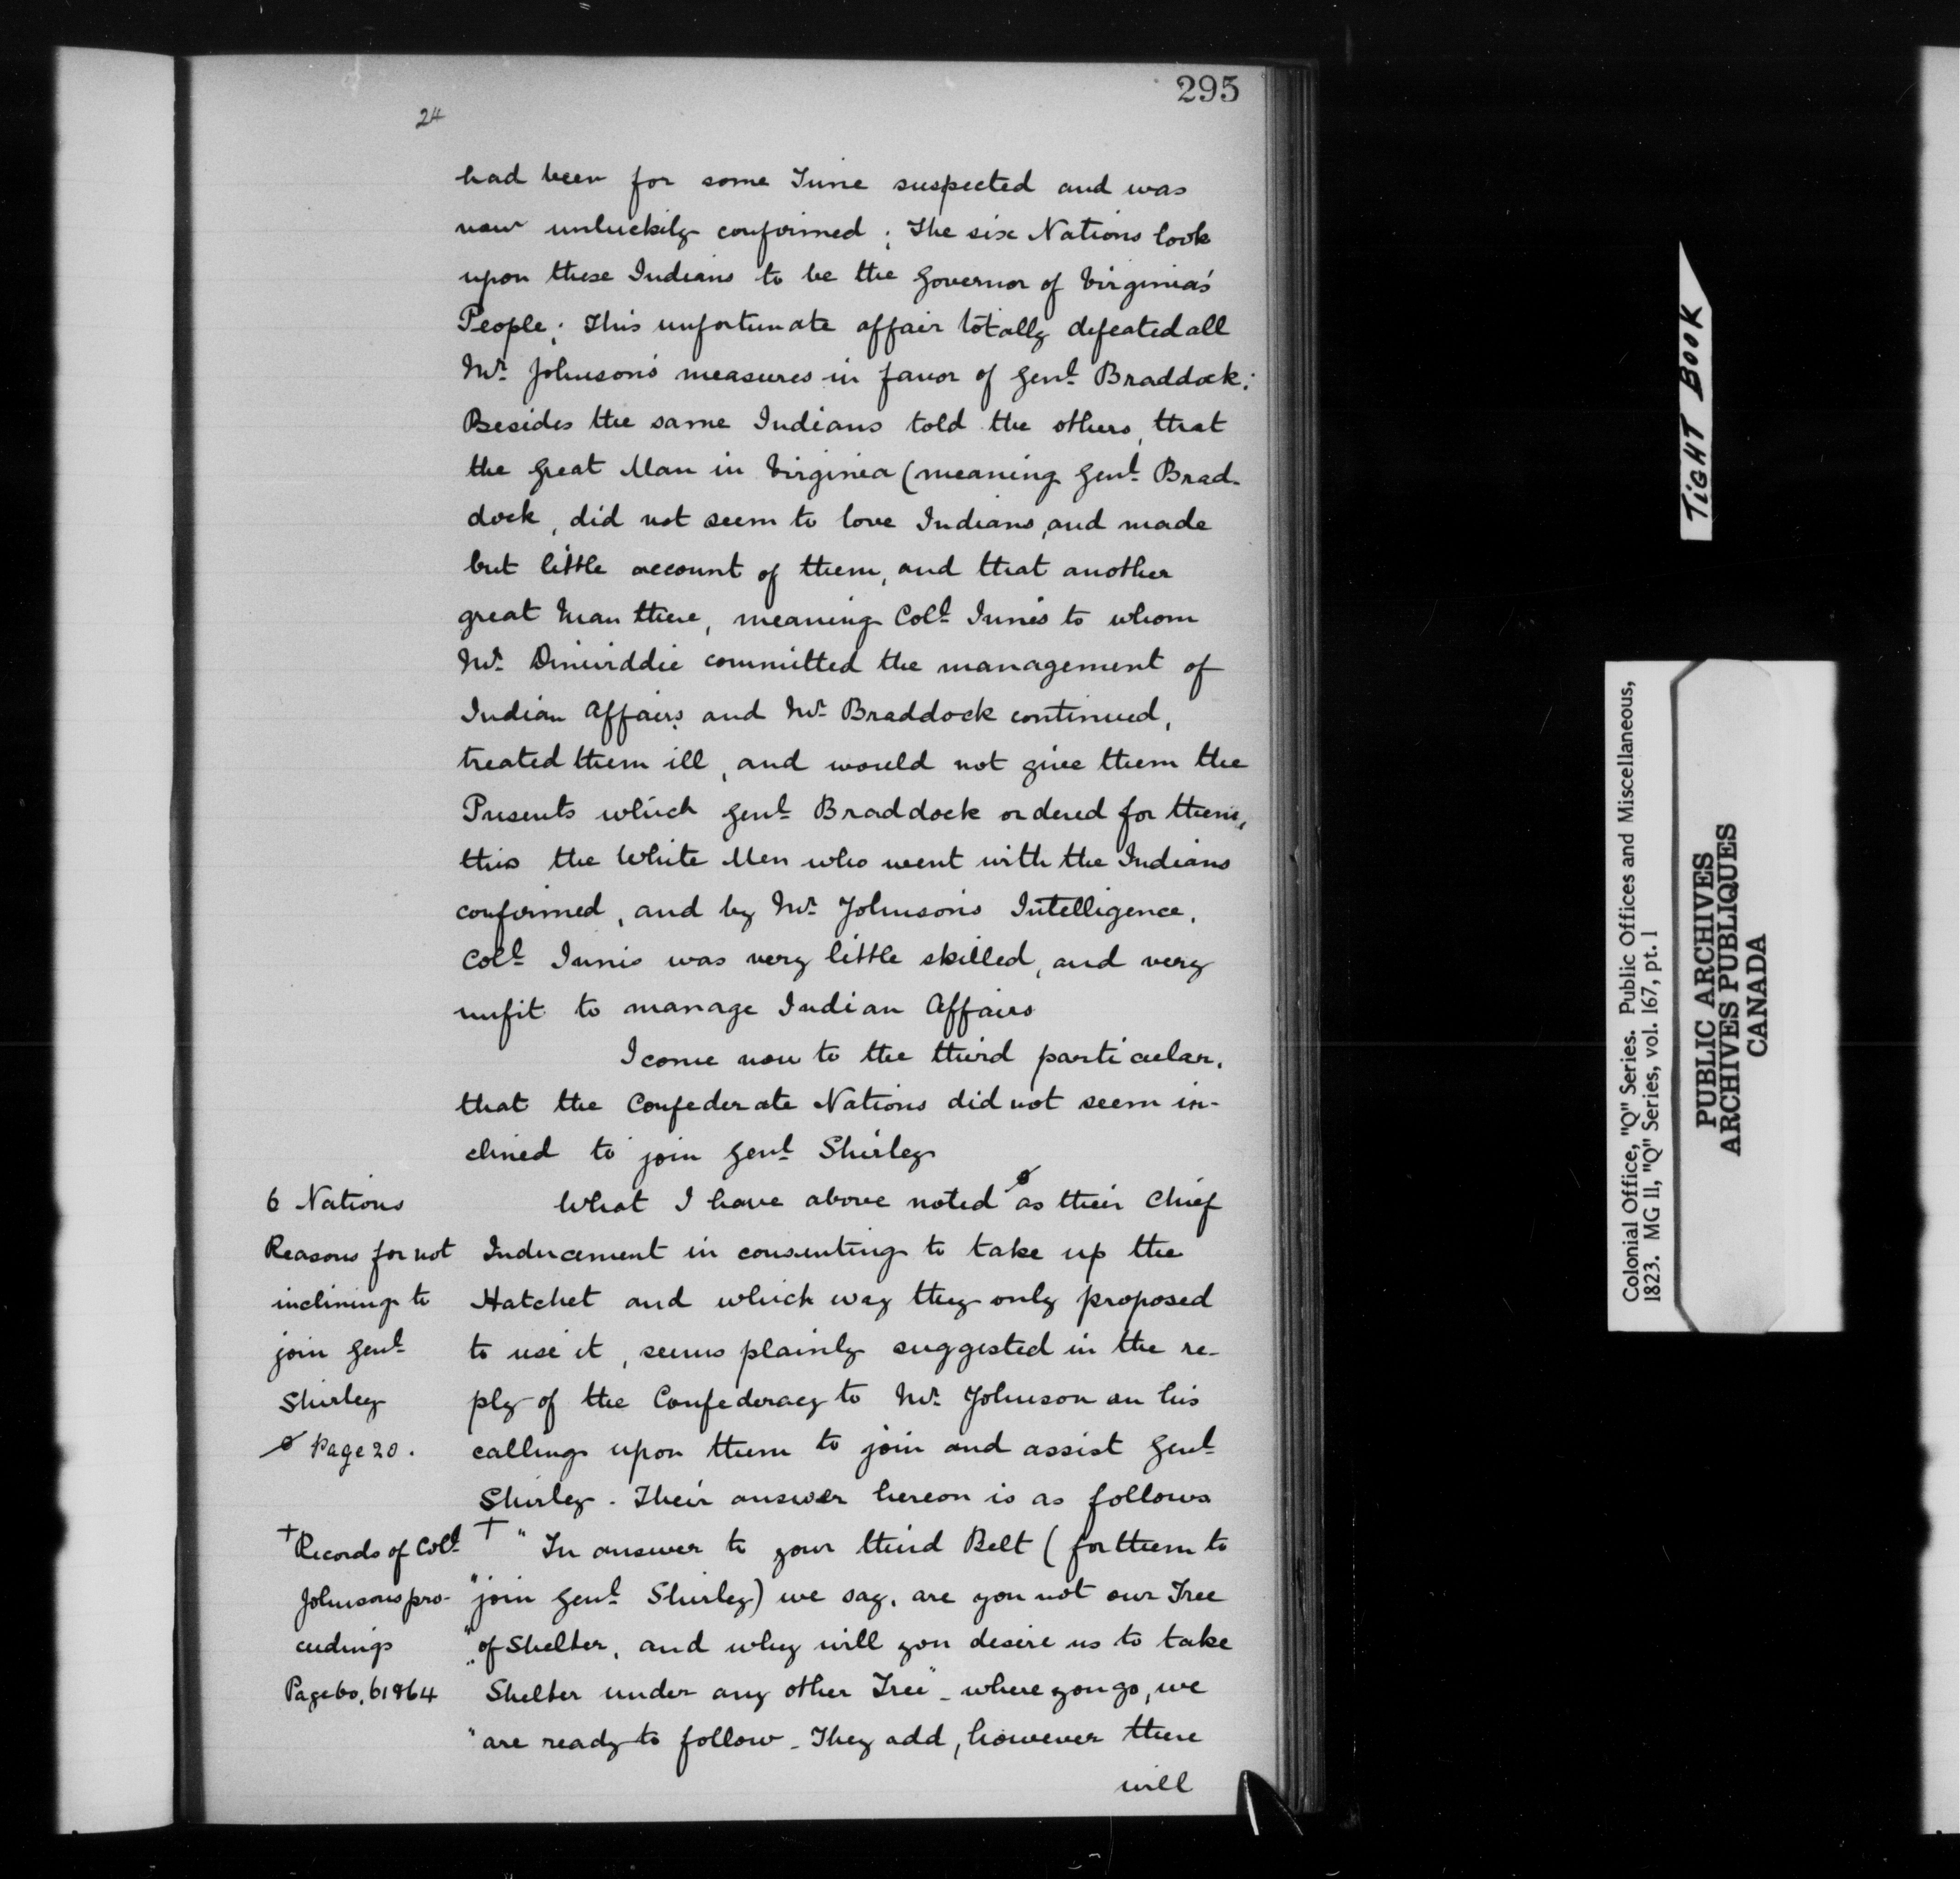 295
24
had been for some Time suspected and was
now unluckily confirmed; The six Nations look
upon these Indians to be the Governor of Virginia's
People; This unfortunate affair totally defeated all
Mr. Johnson's measures in favor of Genl. Braddock;
Besides the same Indians told the others, that
the great Man in Virginia (meaning Genl. Brad-
dock, did not seem to love Indians, and made
but little account of them, and that another
great Man there, meaning Coll. Innes to whom
Mr. Dinwiddie committed the management of
Indian Affairs and Mr. Braddock continued,
treated them ill, and would not give them the
Presents which Genl. Braddock ordered for them,
this the White Men who went with the Indians
confirmed, and by Mr. Johnson's Intelligence,
Coll. Innis was very little skilled, and very
unfit to manage Indian Affairs
I come now to the third particular,
that the Confederate Nations did not seem in-
clined to join Genl. Shirley
6 Nations
Reasons for not
inclining to
join Genl.
Shirley
ø Page 20.
What I have above noted ø as their Chief
Inducement in consenting to take up the
Hatchet and which way they only proposed
to use it, seems plainly suggested in the re-
ply of the Confederacy to Mr. Johnson on his
calling upon them to join and assist Genl.
Shirley. Their answer hereon is as follows
+ Records of Coll.
Johnsons pro-
ceedings
Page 60, 61 & 64
+ " In answer to your third Belt (for them to
"join Genl. Shirley) we say, are you not our Tree
"of Shelter, and why will you desire us to take
" Shelter under any other Tree" - where you go, we
"are ready to follow - They add, however there
will
TIGHT BOOK
Colonial Office, "Q" Series. Public Offices and Miscellaneous,
1823. MG 11, "Q" Series, vol. 167, pt. 1
PUBLIC ARCHIVES
ARCHIVES PUBLIQUES
CANADA